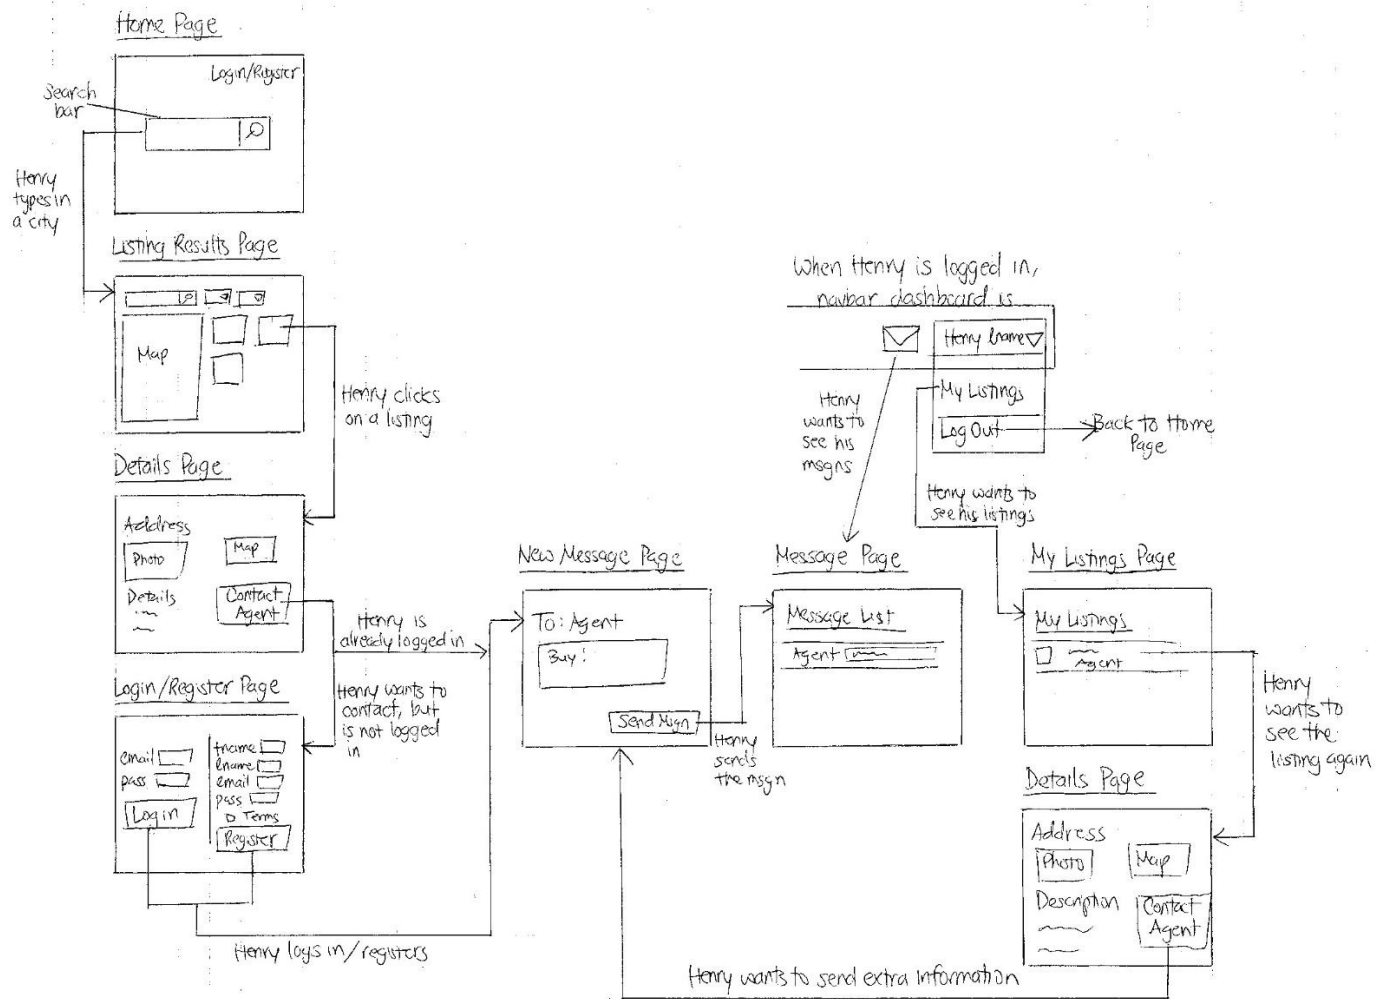 Home Page
Login/Register
Search
bar
Henry
types in
a city
Listing Results Page
Map
Henry clicks
on a listing
Details Page
Address
Photo
Map
Details
Contact
Agent
Henry is
already logged in
Login/Register Page
Henry wants to
contact, but
is not logged
in
email
pass
Login
fname
lname
email
pass
Terms
Register
Henry logs in/registers
New Message Page
To: Agent
Buy!
Send Msgn
Henry
sends
the msgn
When Henry is logged in,
navbar dashboard is
Henry lname
My Listings
Log Out
Back to Home
Page
Henry
wants to
see his
msgns
Henry wants to
see his listings
Message Page
Message List
Agent
My Listings Page
My Listings
Agent
Henry
wants to
see the
listing again
Details Page
Address
Photo
Map
Description
Contact
Agent
Henry wants to send extra information